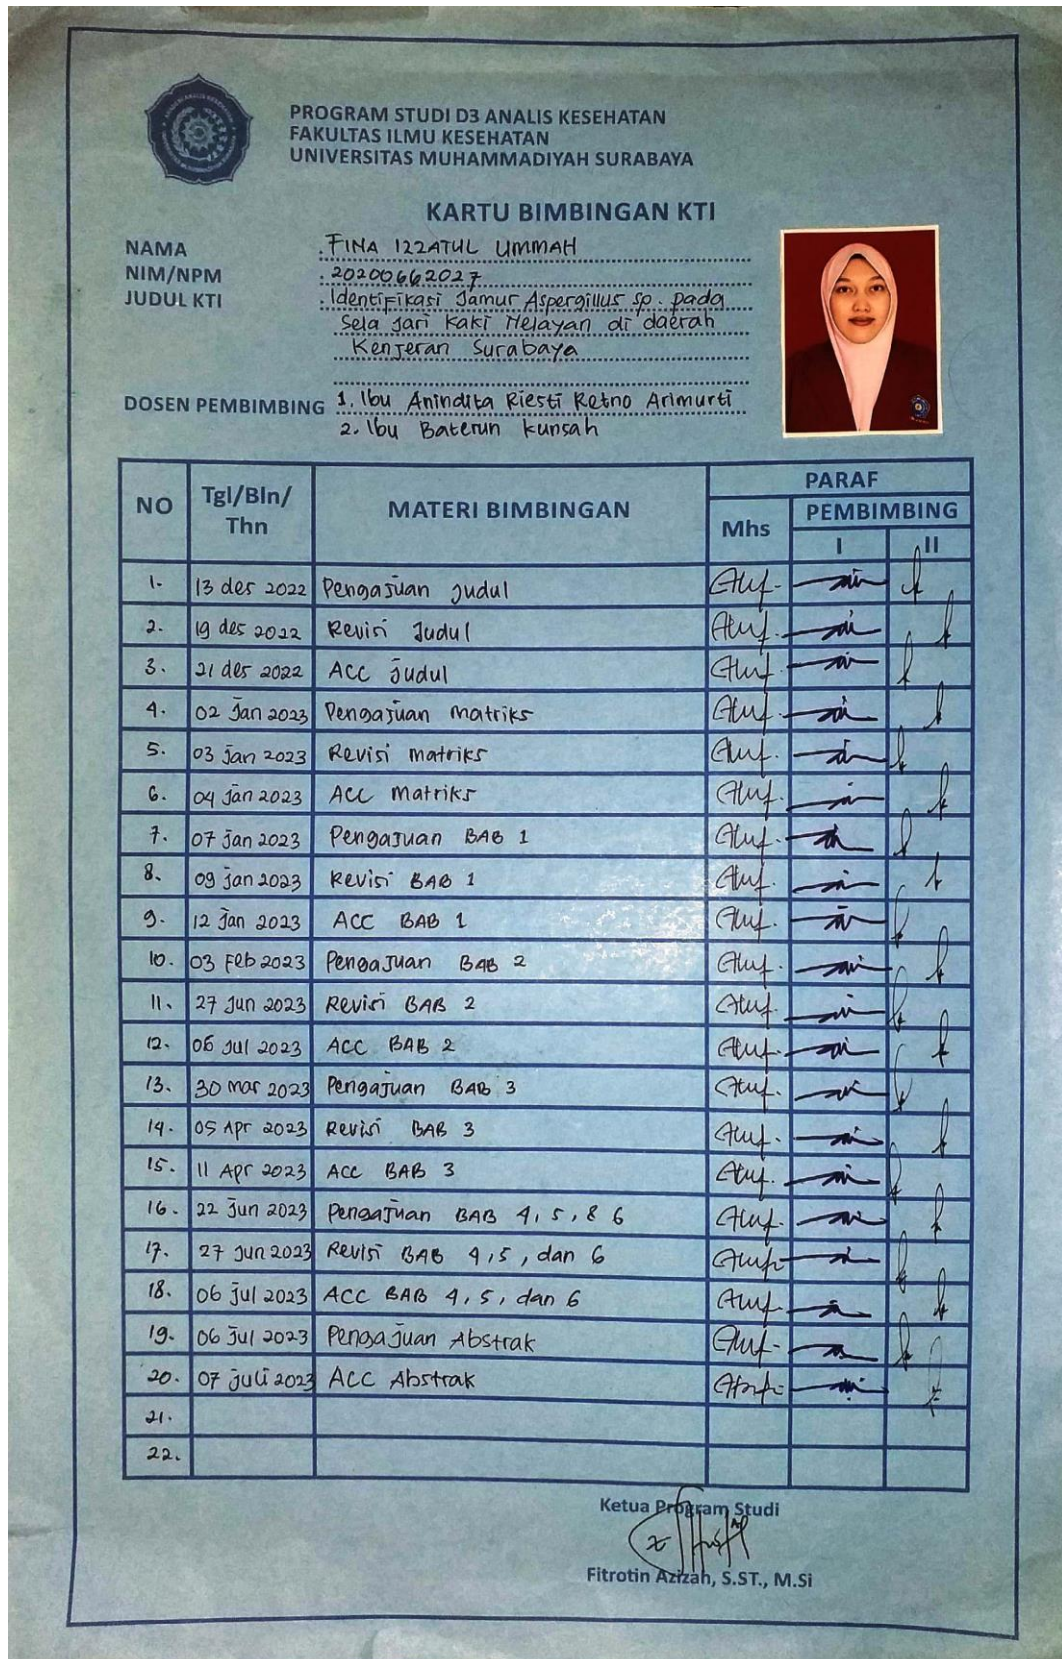 PROGRAM STUDI D3 ANALIS KESEHATAN
FAKULTAS ILMU KESEHATAN
UNIVERSITAS MUHAMMADIYAH SURABAYA
KARTU BIMBINGAN KTI
NAMA : FINA IZZATUL UMMAH
NIM/NPM : 20200662027
JUDUL KTI : Identifikasi Jamur Aspergillus sp. pada
Sela Jari Kaki Nelayan di daerah
Kenjeran Surabaya
DOSEN PEMBIMBING 1. Ibu Anindita Riesti Retno Arimurti
2. Ibu Baterun Kunsah
PARAF
NO Tgl/Bln/ MATERI BIMBINGAN Mhs PEMBIMBING
Thn I II
1. 13 des 2022 Pengajuan Judul
2. 19 des 2022 Revisi Judul
3. 21 des 2022 ACC Judul
4. 02 Jan 2023 Pengajuan Matriks
5. 03 Jan 2023 Revisi Matriks
6. 04 Jan 2023 ACC Matriks
7. 07 Jan 2023 Pengajuan BAB 1
8. 09 Jan 2023 Revisi BAB 1
9. 12 Jan 2023 ACC BAB 1
10. 03 Feb 2023 Pengajuan BAB 2
11. 27 Jun 2023 Revisi BAB 2
12. 06 Jul 2023 ACC BAB 2
13. 30 Mar 2023 Pengajuan BAB 3
14. 05 Apr 2023 Revisi BAB 3
15. 11 Apr 2023 ACC BAB 3
16. 22 Jun 2023 Pengajuan BAB 4, 5, & 6
17. 27 Jun 2023 Revisi BAB 4, 5, dan 6
18. 06 Jul 2023 ACC BAB 4, 5, dan 6
19. 06 Jul 2023 Pengajuan Abstrak
20. 07 Juli 2023 ACC Abstrak
21.
22.
Ketua Program Studi
Fitrotin Azizah, S.ST., M.Si